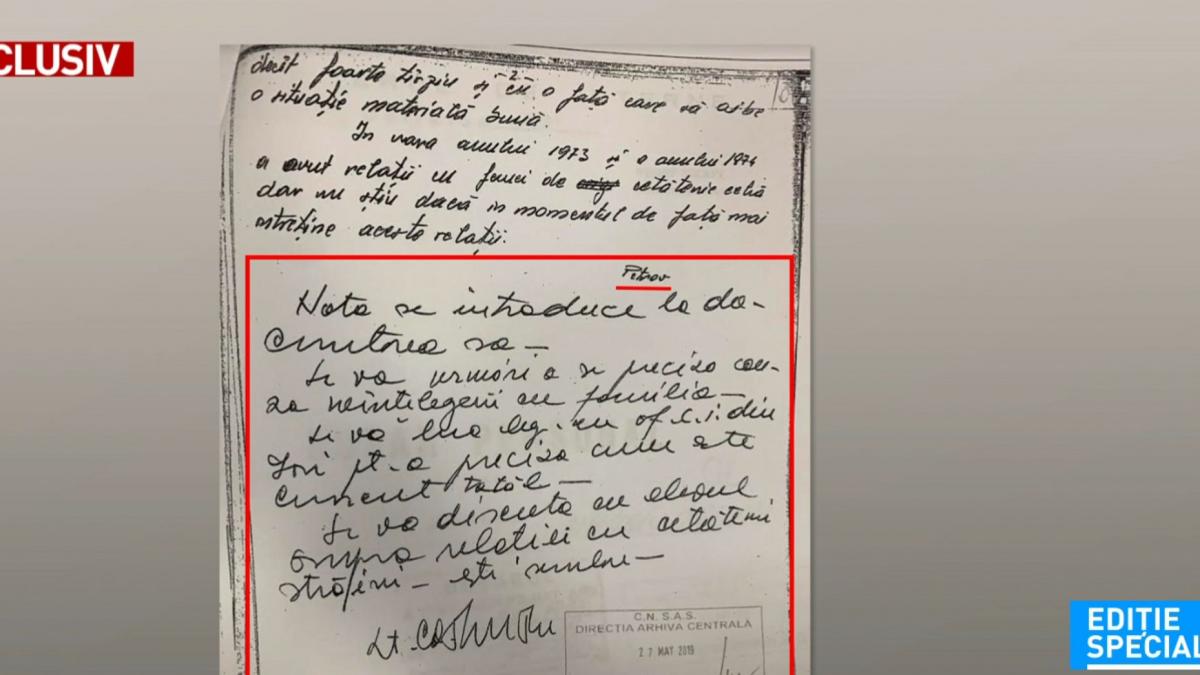 CLUSIV
decît foarte tîrziu și cu o față care să aibe
2
o situație materială bună.
În vara anului 1973 și a anului 1974
a avut relații cu femei de cetățenie
dar nu știu dacă în momentul de față mai
întreține aceste relații.
Petrov
Nota se introduce la do-
cumentarea sa —
Se va urmări a se preciza cau-
za neînțelegerii cu familia —
Se va lua leg. cu of. c.i. din
pt. a preciza cum este
cunoscut tatăl —
Se va discuta cu elevul
asupra relațiilor cu cetățeni
străini —
Lt.
C.N.S.A.S.
DIRECȚIA ARHIVA CENTRALĂ
27 MAY 2019
EDIȚIE
SPECIAL